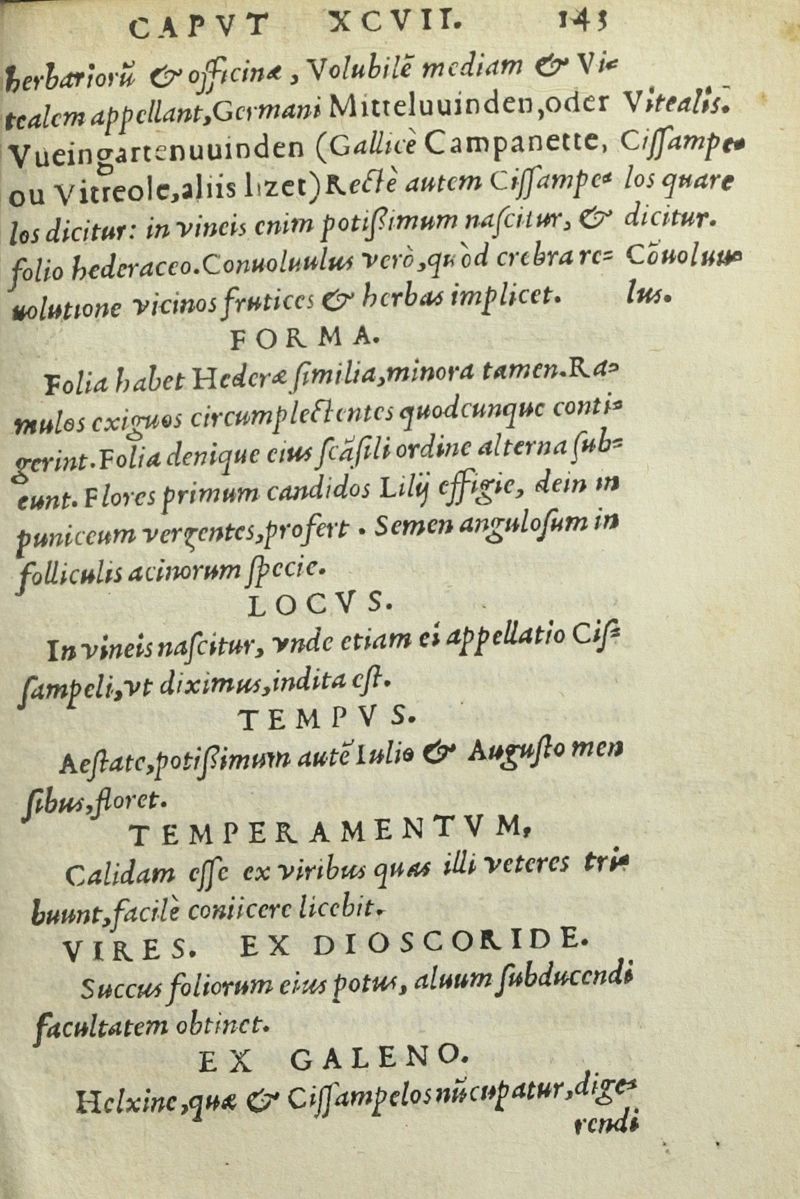 CAPVT XCVII. 143
herbariorũ & officinæ, Volubilẽ mediam & Vi-
tealem appellant, Germani Mitteluuinden, oder
Vueingartenuuinden (Gallicè Campanette,
ou Vitreole, aliis lizet) Rectè autem Cissampe-
los dicitur: in vineis enim potißimum nascitur, &
folio hederaceo. Conuoluulus verò, quòd crebra re-
uolutione vicinos frutices & herbas implicet.
Vitealis.
Cissampe-
los quare
dicitur.
Cõuoluu-
lus.
FORMA.
Folia habet Hederæ similia, minora tamen. Ra-
mulos exiguos circumplectentes quodcunque conti-
gerint. Folia denique eius scãsili ordine alterna sub-
eunt. Flores primum candidos Lilij effigie, dein in
puniceum vergentes, profert. Semen angulosum in
folliculis acinorum specie.
LOCVS.
In vineis nascitur, vnde etiam ei appellatio Cis-
sampeli, vt diximus, indita est.
TEMPVS.
Aestate, potißimum autẽ Iulio & Augusto men
sibus, floret.
TEMPERAMENTVM,
Calidam esse ex viribus quas illi veteres tri-
buunt, facilè coniicere licebit.
VIRES. EX DIOSCORIDE.
Succus foliorum eius potus, aluum subducendi
facultatem obtinet.
EX GALENO.
Helxine, quæ & Cissampelos nũcupatur, dige-
rendi